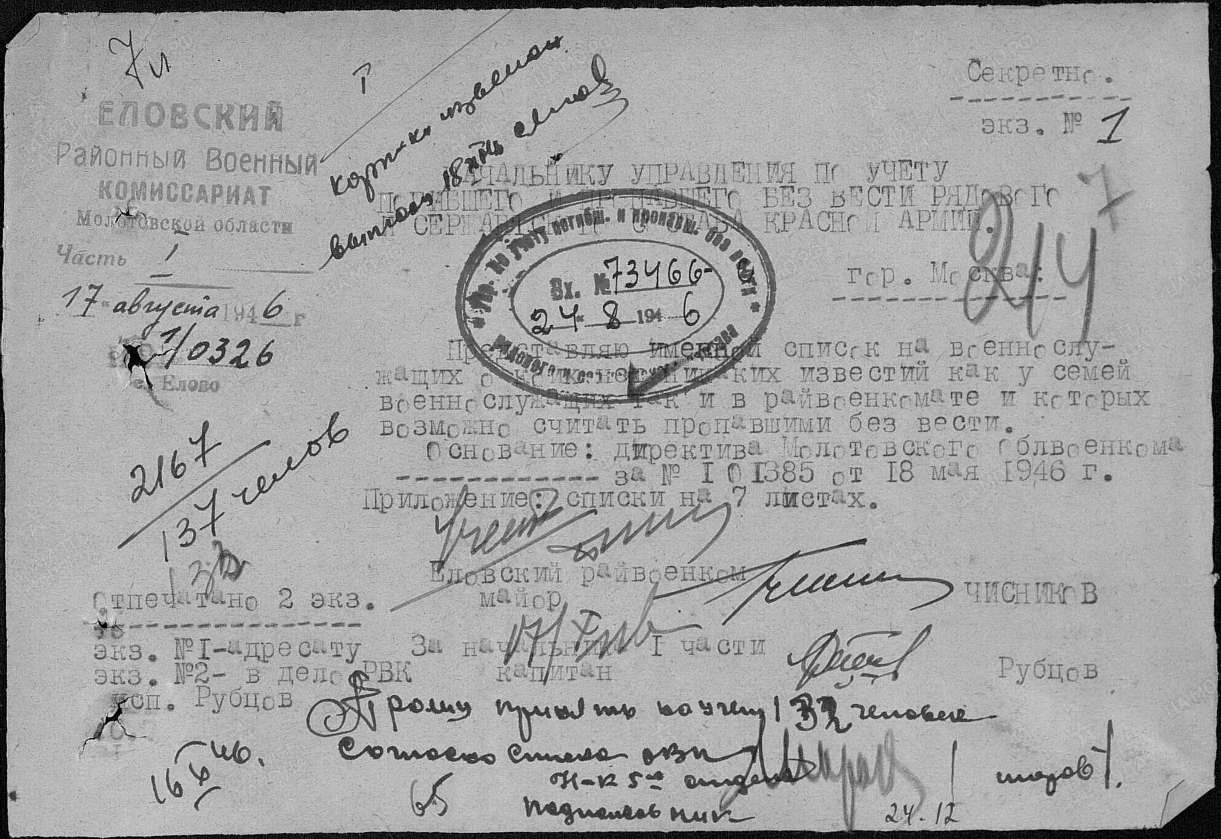 7л
I
Секретно.
экз. № 1
ЕЛОВСКИЙ
Районный Военный
КОМИССАРИАТ
Молотовской области
Часть I
17 августа 1946 г
1/0326
с. Елово
2167
137 челов
выписал
НАЧАЛЬНИКУ УПРАВЛЕНИЯ ПО УЧЕТУ
ПОГИБШЕГО И ПРОПАВШЕГО БЕЗ ВЕСТИ РЯДОВОГО
И СЕРЖАНТСКОГО СОСТАВА КРАСНОЙ АРМИИ.
гор. Москва:
7
Упр. по учету погибш. и пропавш. без вести
Вх. № 73466
24 8 1946
рядового и сержантского состава
Представляю именной список на военнослу-
жащих о коих нет никаких известий как у семей
военнослужащих так и в райвоенкомате и которых
возможно считать пропавшими без вести.
Основание: директива Молотовского Облвоенкома
за № 101385 от 18 мая 1946 г.
Приложение: списки на 7 листах.
Еловский райвоенком
майор
ЧИСНИКОВ
Отпечатано 2 экз.
экз. №I-адресату
экз. №2- в дело РВК
исп. Рубцов
За начальника I части
капитан
Рубцов
Прошу принять на учет 132 человек
согласно списка
Н-к 5го отдела
подполковник
65
24.12